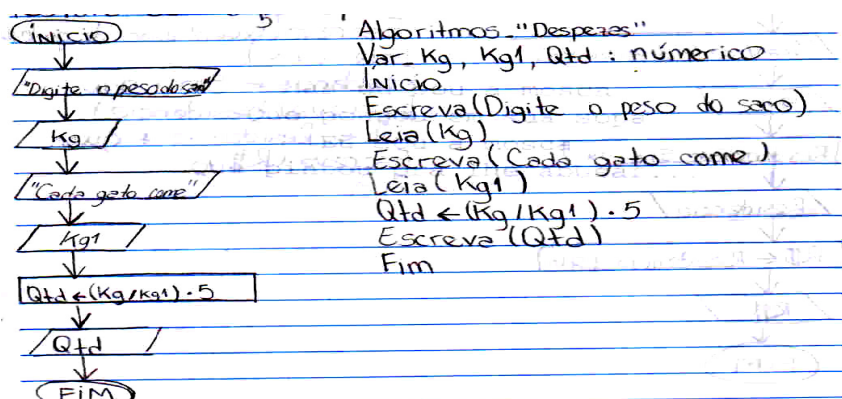 5
INICIO
"Digite o peso do saco"
Kg
"Cada gato come"
Kg1
Qtd ← (Kg/Kg1) · 5
Qtd
FIM
Algoritmos_"Despezes"
Var_ Kg, Kg1, Qtd : númerico
INICIO
Escreva (Digite o peso do saco)
Leia (Kg)
Escreva (Cada gato come)
Leia (Kg1)
Qtd ← (Kg/Kg1) · 5
Escreva (Qtd)
Fim